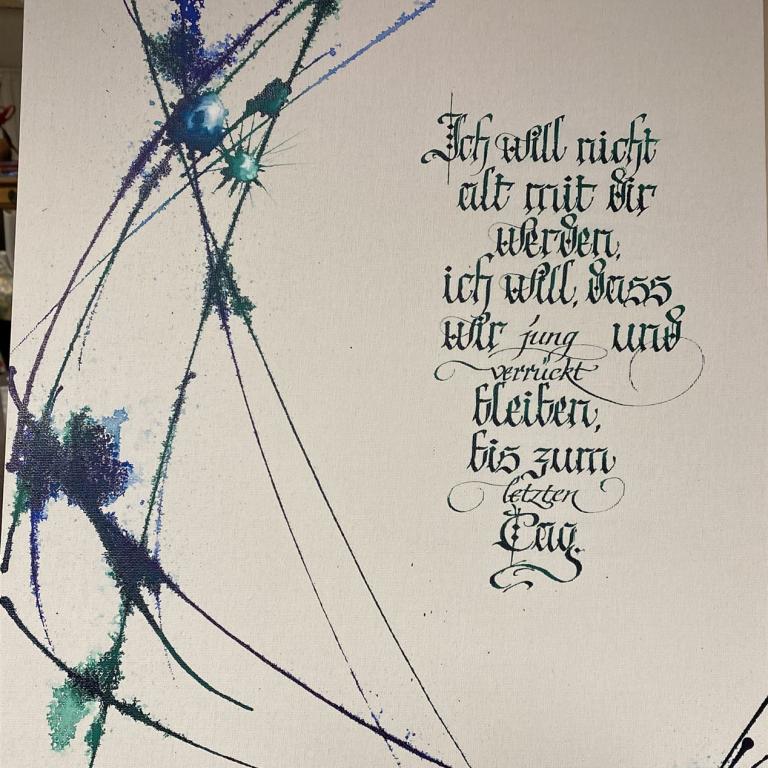 Ich will nicht
alt mit dir
werden,
ich will, dass
wir jung und
verrückt
bleiben,
bis zum
letzten
Tag.